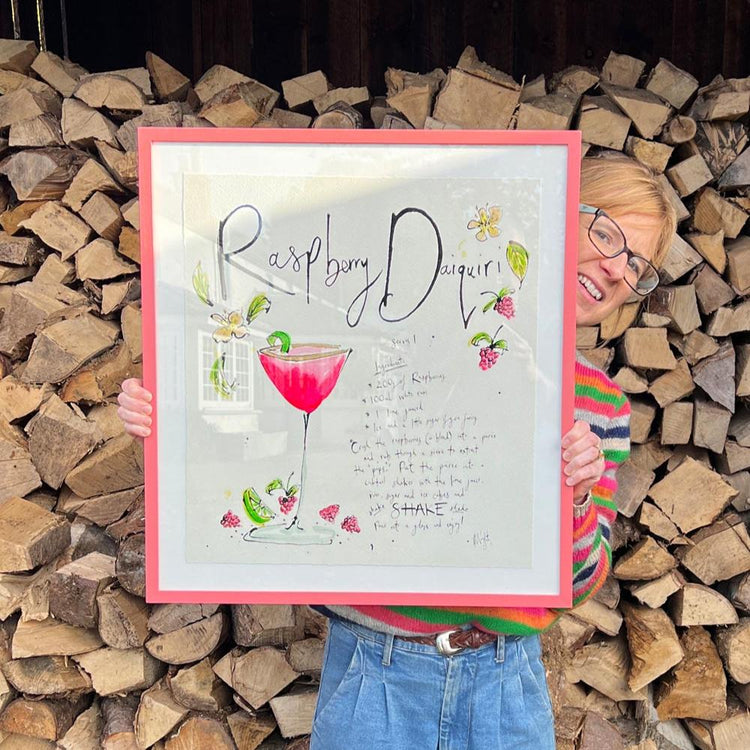 Raspberry Daiquiri
Serves 1
Ingredients
200g of Raspberries
100ml white rum
1 lime juiced
Ice and a little
Crush the raspberries in a puree
and push through a sieve to extract
the "pips". Put the puree into a
cocktail shaker with the lime juice,
rum, sugar and ice cubes and
shake SHAKE shake
Pour into a glass and enjoy!